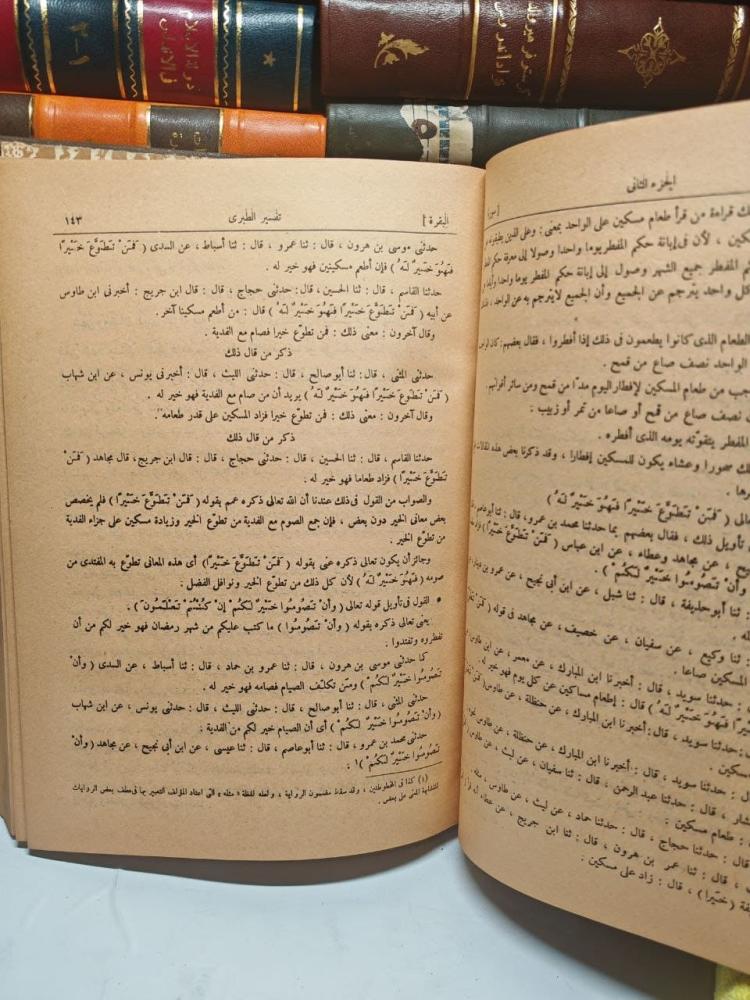 الجزء الثانى
ك قراءة من قرأ طعام مسكين على الواحد بمعنى : وعلى الذين يطيقونه
كين ، لأن فى إبانة حكم المفطر يوما واحدا وصولا إلى معرفة حكم
المفطر جميع الشهر وصول إلى إبانة حكم المفطر يوما واحدا وأيام
ل واحد يترجم عن الجميع وأن الجميع لايترجم به عن الواحد ،
الطعام الذى كانوا يطعمون فى ذلك إذا أفطروا ، فقال بعضهم : كان
الواحد نصف صاع من قمح .
جب من طعام المسكين لإفطار اليوم مدا من قمح ومن سائر أقواتهم
نصف صاع من قمح أو صاعا من تمر أو زبيب .
المفطر يتقوته يومه الذى أفطره .
لك سحورا وعشاء يكون للمسكين إفطارا ، وقد ذكرنا بعض هذه المقالات
الى ( فَمَنْ تَطَوَّعَ خَيْرًا فَهُوَ خَيْرٌ لَهُ )
تأويل ذلك ، فقال بعضهم بما حدثنا محمد بن عمرو ، قال : ثنا أبو عاصم
ح ، عن مجاهد وعطاء ، عن ابن عباس ( فَمَنْ تَطَوَّعَ خَيْرًا )
وأنْ تَصُومُوا خَيْرٌ لَكُمْ ) .
: ثنا أبو حذيفة ، قال : ثنا شبل ، عن ابن أبى نجيح ، عن عمرو بن
: ثنا وكيع ، عن سفيان ، عن خصيف ، عن مجاهد فى قوله
المسكين صاعا .
: حدثنا سويد ، قال : أخبرنا ابن المبارك ، عن معمر ، عن ابن طاوس
خَيْرًا فَهُوَ خَيْرٌ لَهُ ) قال : إطعام مساكين عن كل يوم فهو خير له .
: حدثنا سويد ، قال : أخبرنا ابن المبارك ، عن حنظلة ، عن طاوس
حدثنا سويد ، قال : أخبرنا ابن المبارك ، عن حنظلة ، عن طاوس
بشار ، قال : حدثنا عبد الرحمن ، قال : ثنا سفيان ، عن ليث ، عن طاوس
: طعام مسكين .
قال : حدثنا حجاج ، قال : حدثنا حماد ، عن ليث ، عن طاوس ، مثله .
، قال : ثنا عمر بن هرون ، قال : ثنا ابن جريج ، عن عطاء
( خَيْرًا ) ، قال : زاد على مسكين .
البقرة ] تفسير الطبرى ١٤٣
حدثنى موسى بن هرون ، قال : ثنا عمرو ، قال : ثنا أسباط ، عن السدى ( فَمَنْ تَطَوَّعَ خَيْرًا
فَهُوَ خَيْرٌ لَهُ ) فإن أطعم مسكينين فهو خير له .
حدثنا القاسم ، قال : ثنا الحسين ، قال : حدثنى حجاج ، قال : قال ابن جريج : أخبرنى ابن طاوس
عن أبيه ( فَمَنْ تَطَوَّعَ خَيْرًا فَهُوَ خَيْرٌ لَهُ ) قال : من أطعم مسكينا آخر .
وقال آخرون : معنى ذلك : فمن تطوع خيرا فصام مع الفدية .
ذكر من قال ذلك
حدثنى المثنى ، قال : ثنا أبو صالح ، قال : حدثنى الليث ، قال : أخبرنى يونس ، عن ابن شهاب
( فَمَنْ تَطَوَّعَ خَيْرًا فَهُوَ خَيْرٌ لَهُ ) يريد أن من صام مع الفدية فهو خير له .
وقال آخرون : معنى ذلك : فمن تطوع خيرا فزاد المسكين على قدر طعامه .
ذكر من قال ذلك
حدثنا القاسم ، قال : ثنا الحسين ، قال : حدثنى حجاج ، قال : قال ابن جريج ، قال مجاهد ( فَمَنْ
تَطَوَّعَ خَيْرًا ) فزاد طعاما فهو خير له .
والصواب من القول فى ذلك عندنا أن الله تعالى ذكره عمم بقوله ( فَمَنْ تَطَوَّعَ خَيْرًا ) فلم يخصص
بعض معانى الخير دون بعض ، فإن جمع الصوم مع الفدية من تطوع الخير وزيادة مسكين على جزاء الفدية
من تطوع الخير .
وجائز أن يكون تعالى ذكره عنى بقوله ( فَمَنْ تَطَوَّعَ خَيْرًا ) أى هذه المعانى تطوع به المفتدى من
صومه ( فَهُوَ خَيْرٌ لَهُ ) لأن كل ذلك من تطوع الخير ونوافل الفضل :
• القول فى تأويل قوله تعالى ( وأنْ تَصُومُوا خَيْرٌ لَكُمْ إنْ كُنْتُمْ تَعْلَمُونَ ) .
يعنى تعالى ذكره بقوله ( وأنْ تَصُومُوا ) ما كتب عليكم من شهر رمضان فهو خير لكم من أن
تفطروه وتفتدوا .
كما حدثنى موسى بن هرون ، قال : ثنا عمرو بن حماد ، قال : ثنا أسباط ، عن السدى ( وأنْ
تَصُومُوا خَيْرٌ لَكُمْ ) ومن تكلف الصيام فصامه فهو خير له .
حدثنى المثنى ، قال : ثنا أبو صالح ، قال : حدثنى الليث ، قال : حدثنى يونس ، عن ابن شهاب
( وأنْ تَصُومُوا خَيْرٌ لَكُمْ ) أى أن الصيام خير لكم من الفدية .
حدثنى محمد بن عمرو ، قال : ثنا أبو عاصم ، قال : ثنا عيسى ، عن ابن أبى نجيح ، عن مجاهد ( وأنْ
تَصُومُوا خَيْرٌ لَكُمْ ) ١ :
(١) كذا فى المخطوطين ، وقد سقط مضمون الرواية ، ولعله لفظة « مثله » التى اعتاد المؤلف التعبير بها فى خلف بعض الروايات
المتشابهة المتن على بعض .